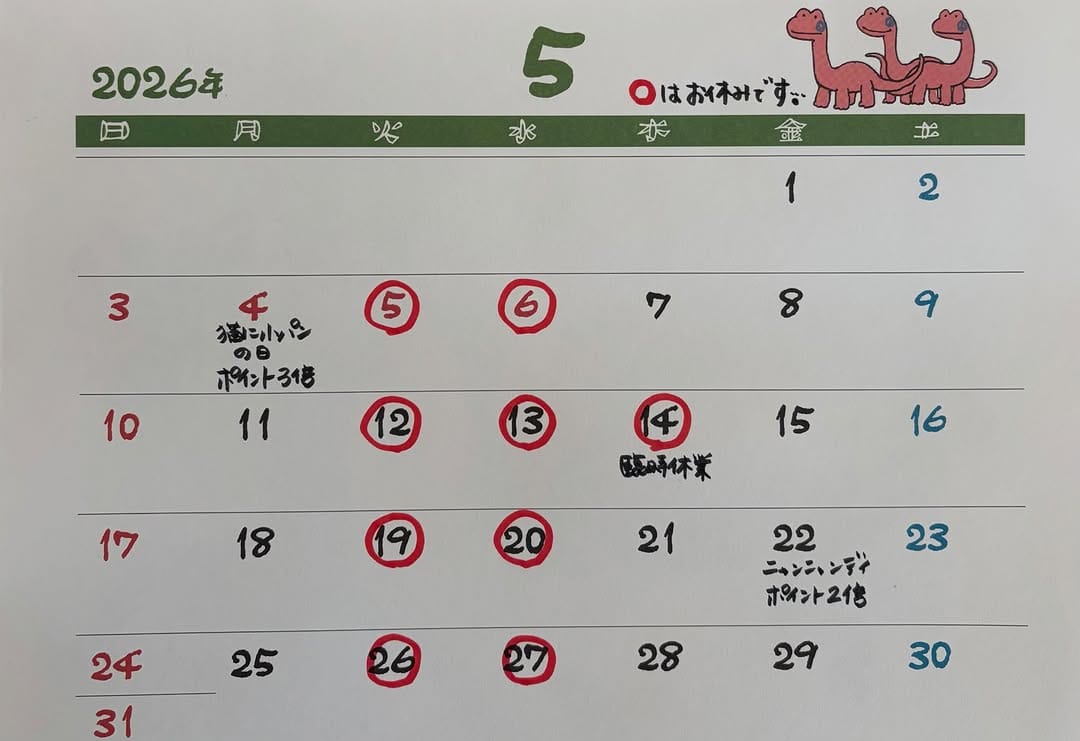 2026年
5
○はお休みです。
日 月 火 水 木 金 土
1 2
3 4 5 6 7 8 9
猫に小パン
の日
ポイント3倍
10 11 12 13 14 15 16
臨時休業
17 18 19 20 21 22 23
ニャンニャンデイ
ポイント2倍
24 25 26 27 28 29 30
31